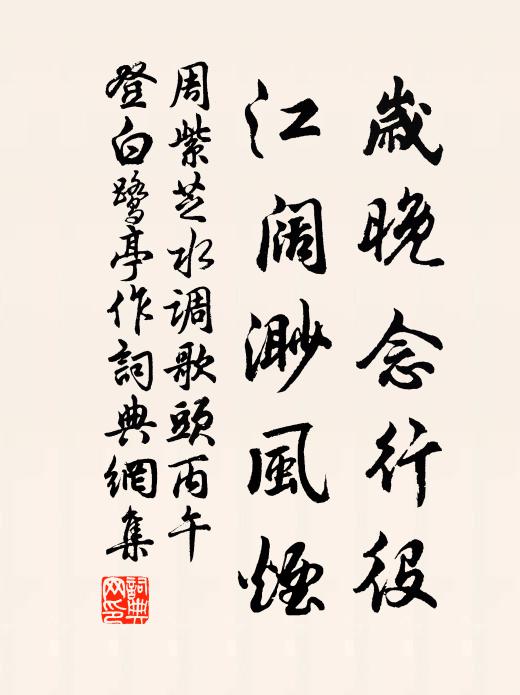 歲晚念行役
江阔渺風煙
周紫芝水调歌頭丙午
登白鹭亭作詞典網集
詞典网印